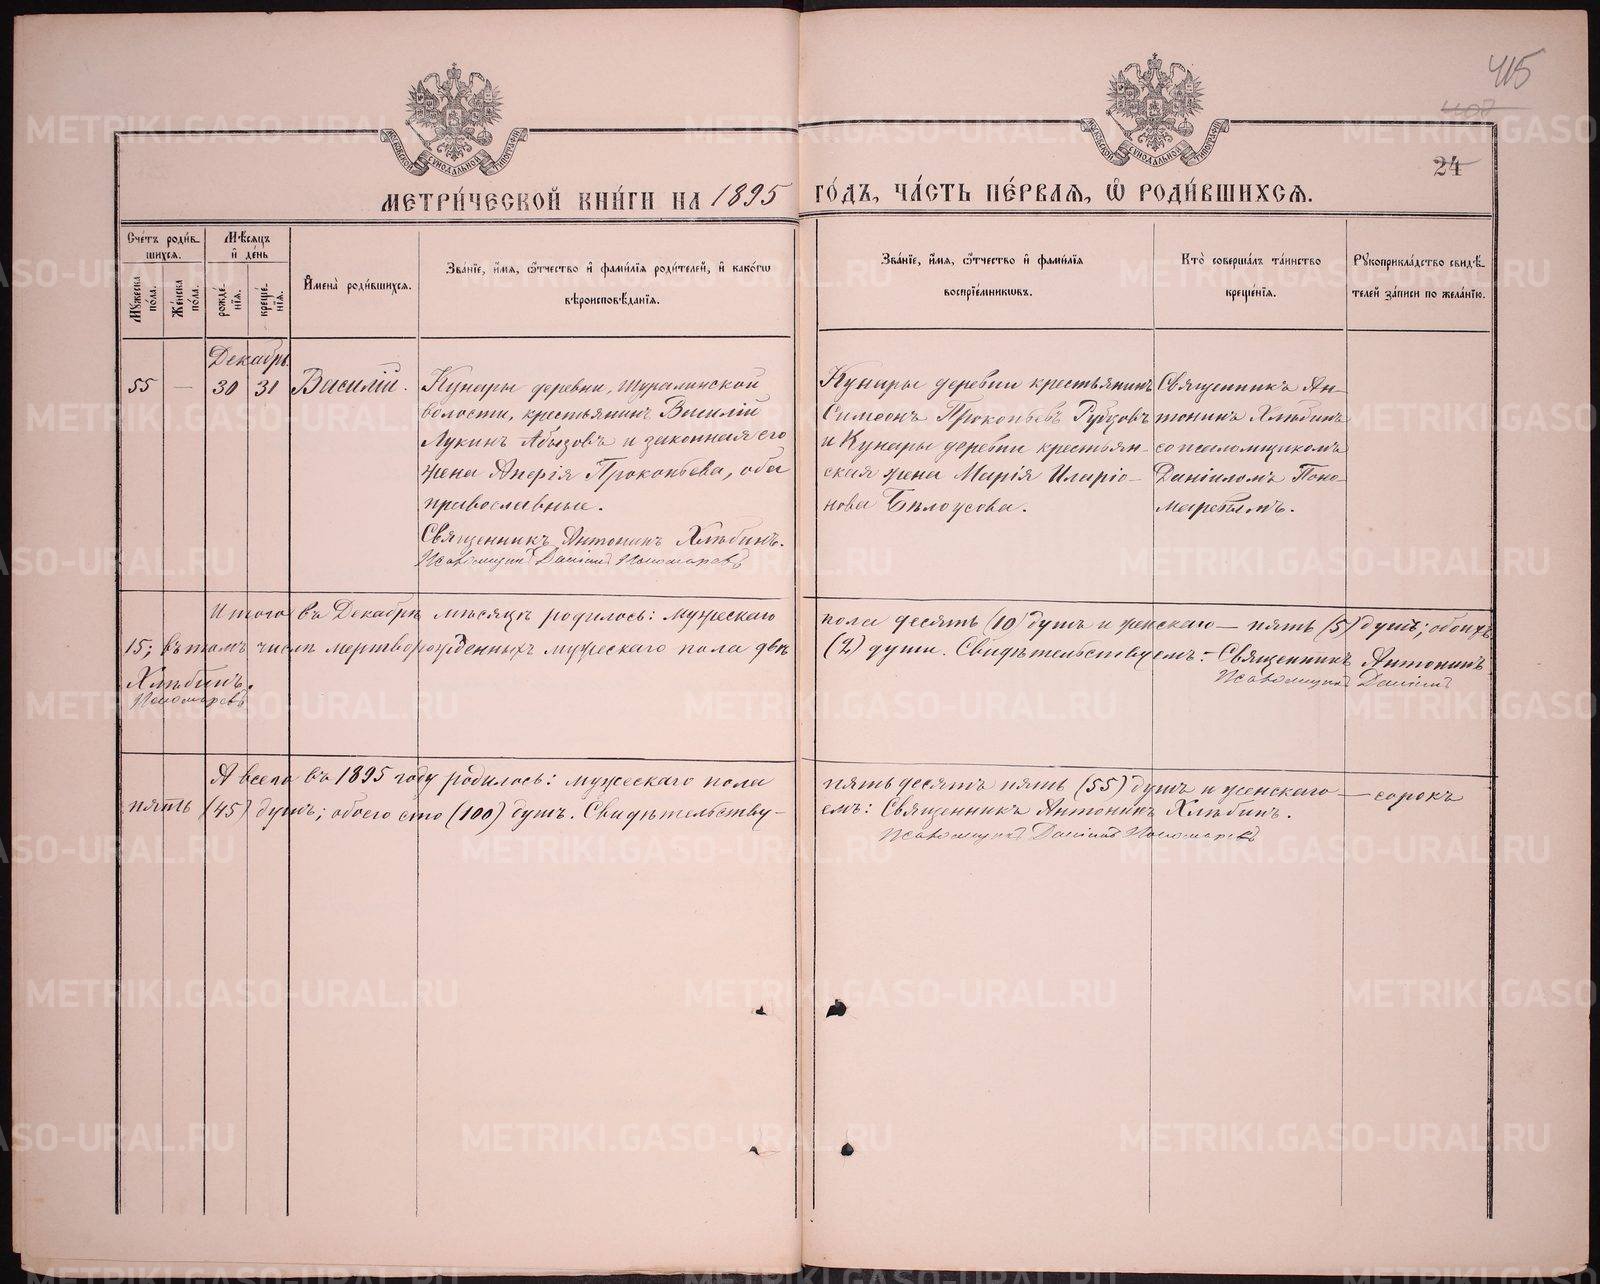 415
407
24
МОСКОВСКОЙ СѴНОДАЛЬНОЙ ТИПОГРАФІИ
МОСКОВСКОЙ СѴНОДАЛЬНОЙ ТИПОГРАФІИ
МЕТРИ́ЧЕСКОЙ КНИ́ГИ НА 1895 ГО́ДЪ, ЧА́СТЬ ПЕ́РВАѦ, Ѡ҆ РОДИ́ВШИХСѦ.
Сче́тъ роди́в-
шихся.
Мꙋ́жеска по́ла.
Же́нска по́ла.
Мѣ́сѧцъ
и҆ де́нь
рожде́-
нїѧ.
креще́-
нїѧ.
И҆мена̀ роди́вшихся.
Зва́нїе, и҆́мѧ, ѻ҆́тчество и҆ фами́лїѧ роди́телей, и҆ како́гѡ
вѣроисповѣ́данїѧ.
Зва́нїе, и҆́мѧ, ѻ҆́тчество и҆ фами́лїѧ
воспрїе́мникѡвъ.
Кто̀ соверша́лъ та́инство
креще́нїѧ.
Рꙋкоприкла́дство свидѣ́-
телей за́писи по жела́нїю.
Декабрь.
55 — 30 31 Василій.
Кунары деревни, Шуралинской
волости, крестьянинъ Василій
Лукинъ Абызовъ и законная его
жена Анфія Прокопьева, оба
православные.
Священникъ Антонинъ Хлѣбинъ.
Псаломщикъ Даніилъ Пономаревъ
Кунары деревни крестьянинъ
Симеонъ Прокопьевъ Рубцовъ
и Кунары деревни крестьян-
ская жена Марія Иларіо-
нова Бѣлоусова.
Священникъ Ан-
тонинъ Хлѣбинъ
со псаломщикомъ
Даніиломъ Поно-
маревымъ.
Итого въ Декабрѣ мѣсяцѣ родилось: мужескаго пола десять (10) душъ и женскаго — пять (5) душъ; обоихъ
15; въ томъ числѣ мертворожденныхъ мужескаго пола двѣ (2) души. Свидѣтельствуемъ: Священникъ Антонинъ
Хлѣбинъ.
Псаломщикъ Даніилъ
Пономаревъ
А всего въ 1895 году родилось: мужескаго пола пятьдесятъ пять (55) душъ и женскаго — сорокъ
пять (45) душъ; обоего сто (100) душъ. Свидѣтельству-емъ: Священникъ Антонинъ Хлѣбинъ.
Псаломщикъ Даніилъ Пономаревъ
METRIKI.GASO-URAL.RU